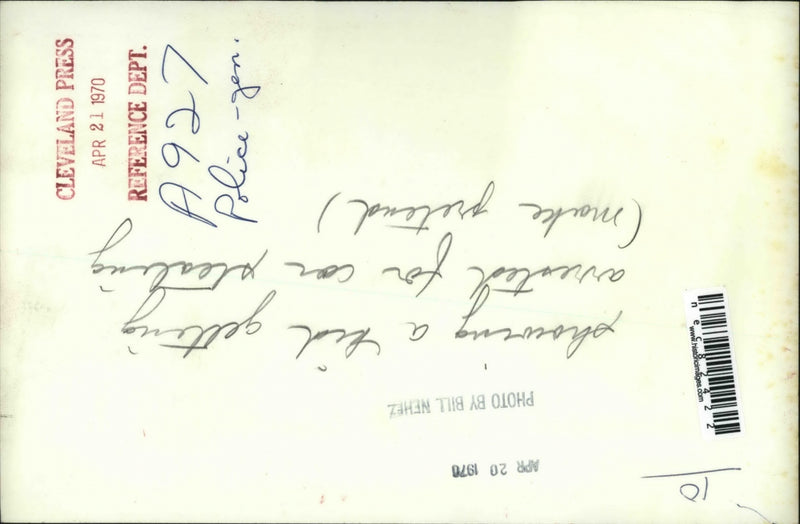 CLEVELAND PRESS
APR 21 1970
REFERENCE DEPT.
A927
Police-gen.
10
APR 20 1970
PHOTO BY BILL NEHEZ
showing a kid getting
arrested for car stealing
(make pretend)
www.historicimages.com